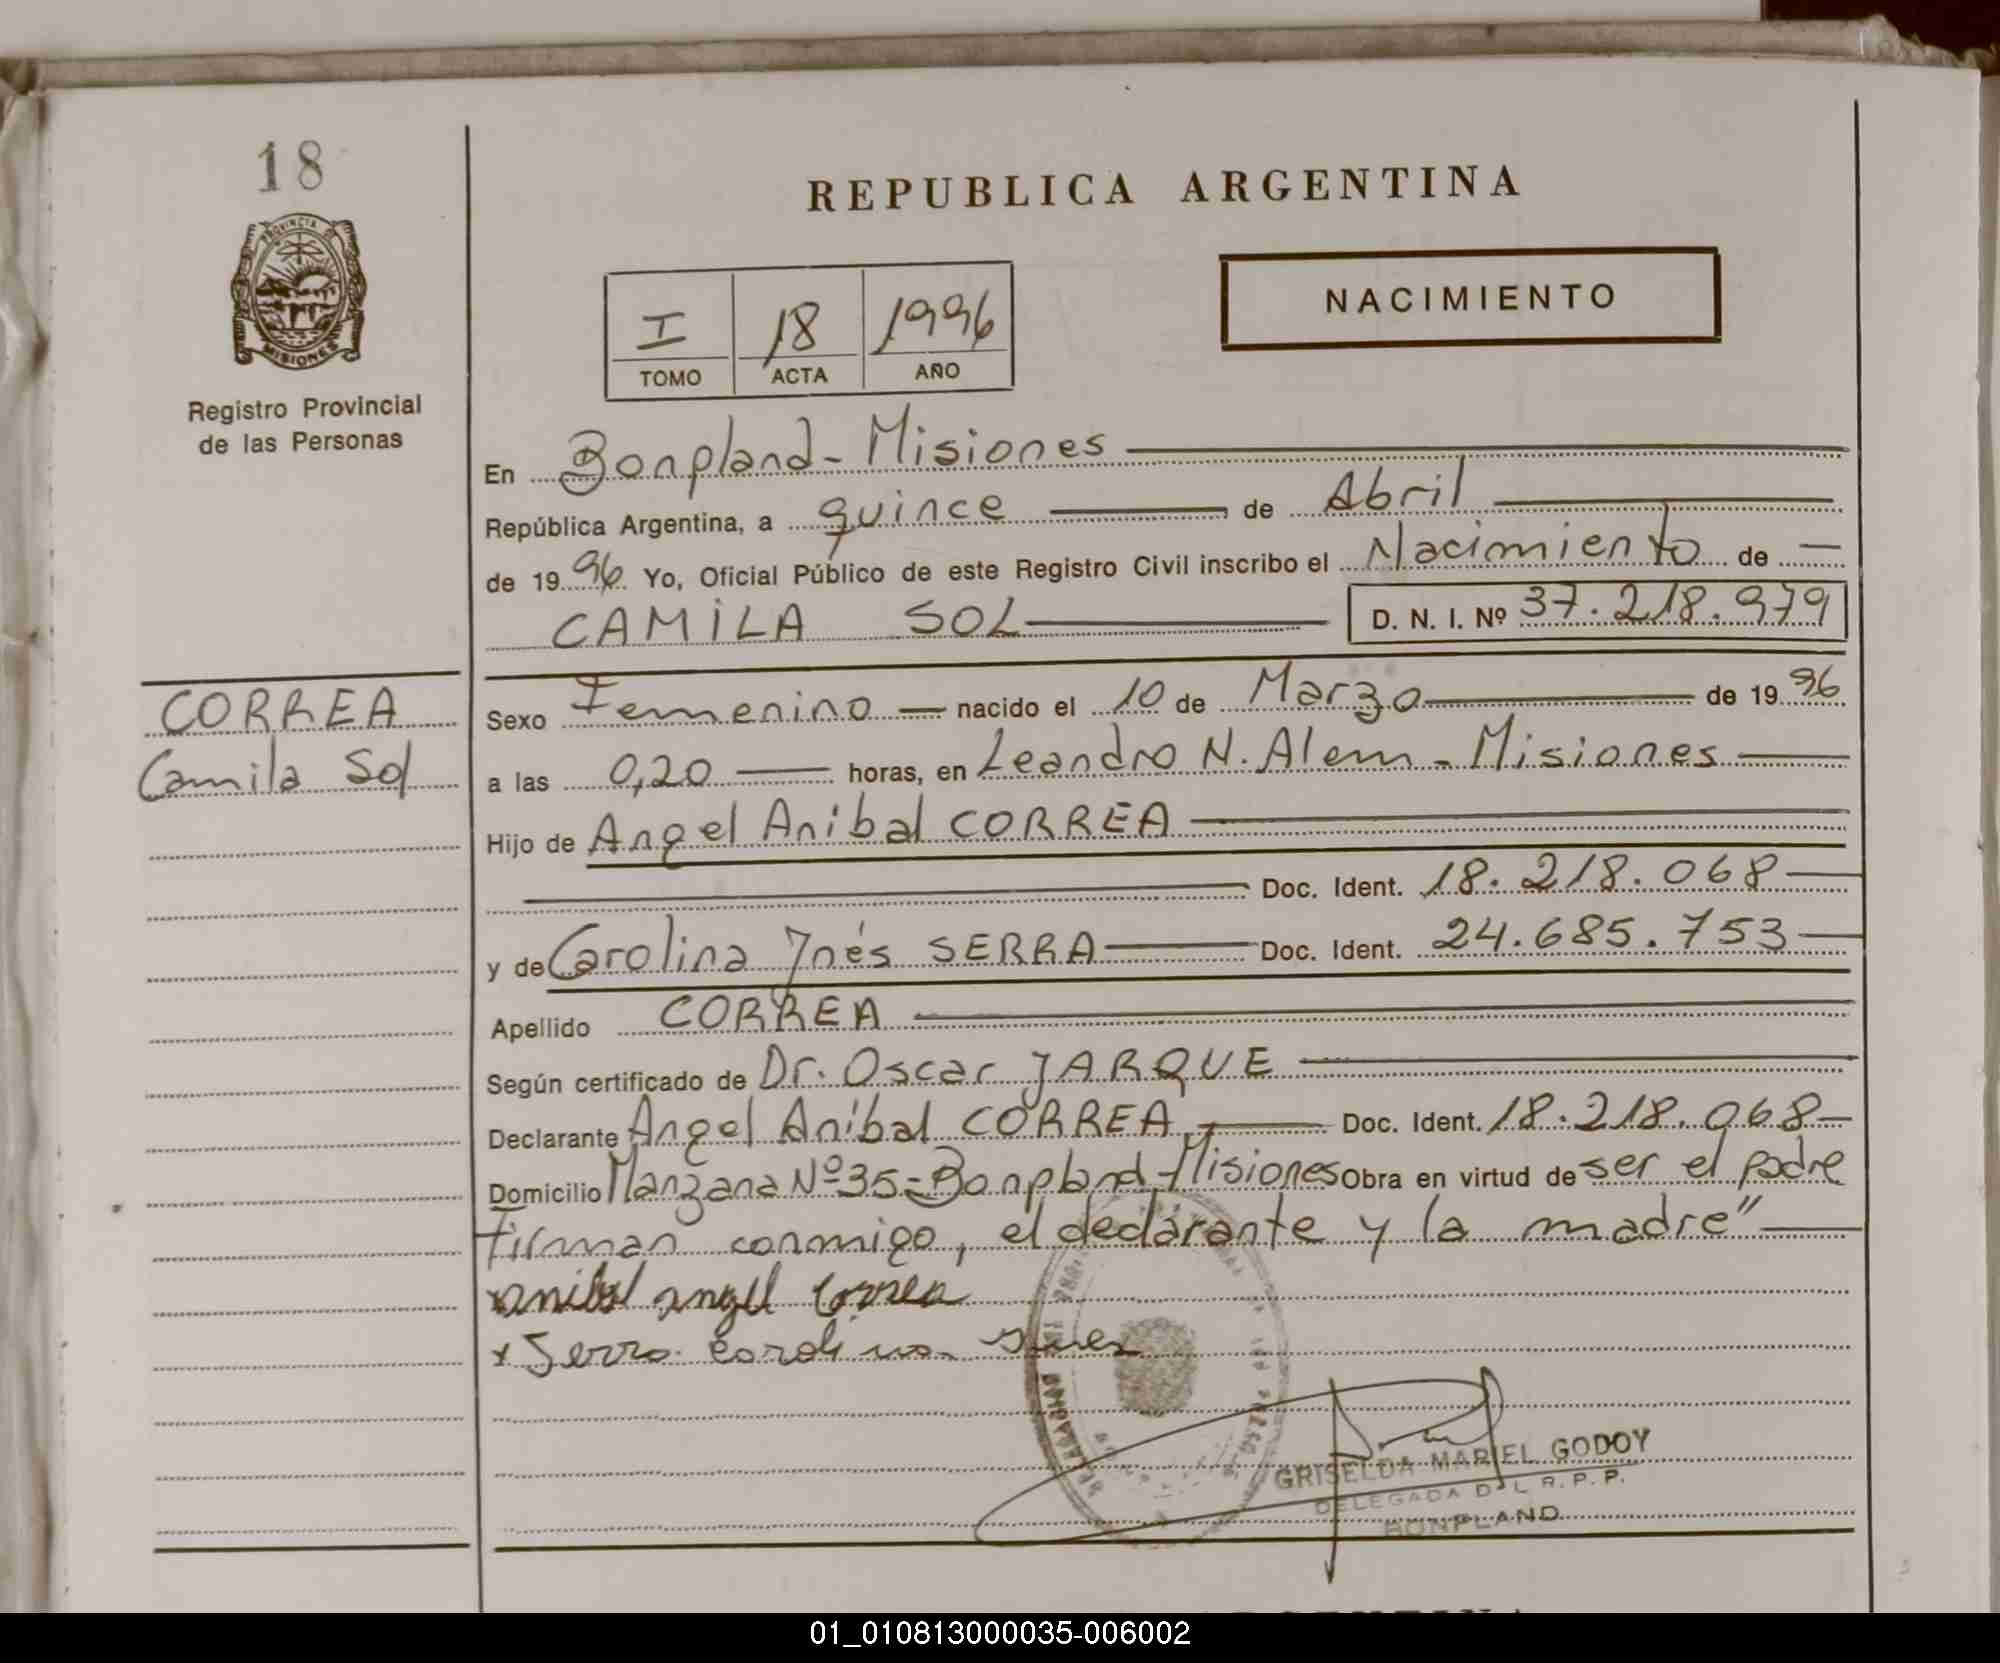 18
PROVINCIA DE
MISIONES
Registro Provincial
de las Personas
REPUBLICA ARGENTINA
NACIMIENTO
I 18 1996
TOMO ACTA AÑO
En Bonpland - Misiones
República Argentina, a quince de Abril
de 1996 Yo, Oficial Público de este Registro Civil inscribo el Nacimiento de
CAMILA SOL D. N. I. Nº 37.218.979
CORREA
Camila Sol
Sexo Femenino nacido el 10 de Marzo de 1996
a las 0,20 horas, en Leandro N. Alem - Misiones
Hijo de Angel Anibal CORREA
Doc. Ident. 18.218.068
y de Carolina Ynés SERRA Doc. Ident. 24.685.753
Apellido CORREA
Según certificado de Dr. Oscar JARQUE
Declarante Angel Aníbal CORREA Doc. Ident. 18.218.068
Domicilio Manzana Nº 35 - Bonpland - Misiones Obra en virtud de ser el padre
Firman conmigo, el declarante y la madre"
anibal angel Correa
x Serra Carolina Ines
GRISELDA MARIEL GODOY
DELEGADA DEL R. P. P.
BONPLAND
01_010813000035-006002